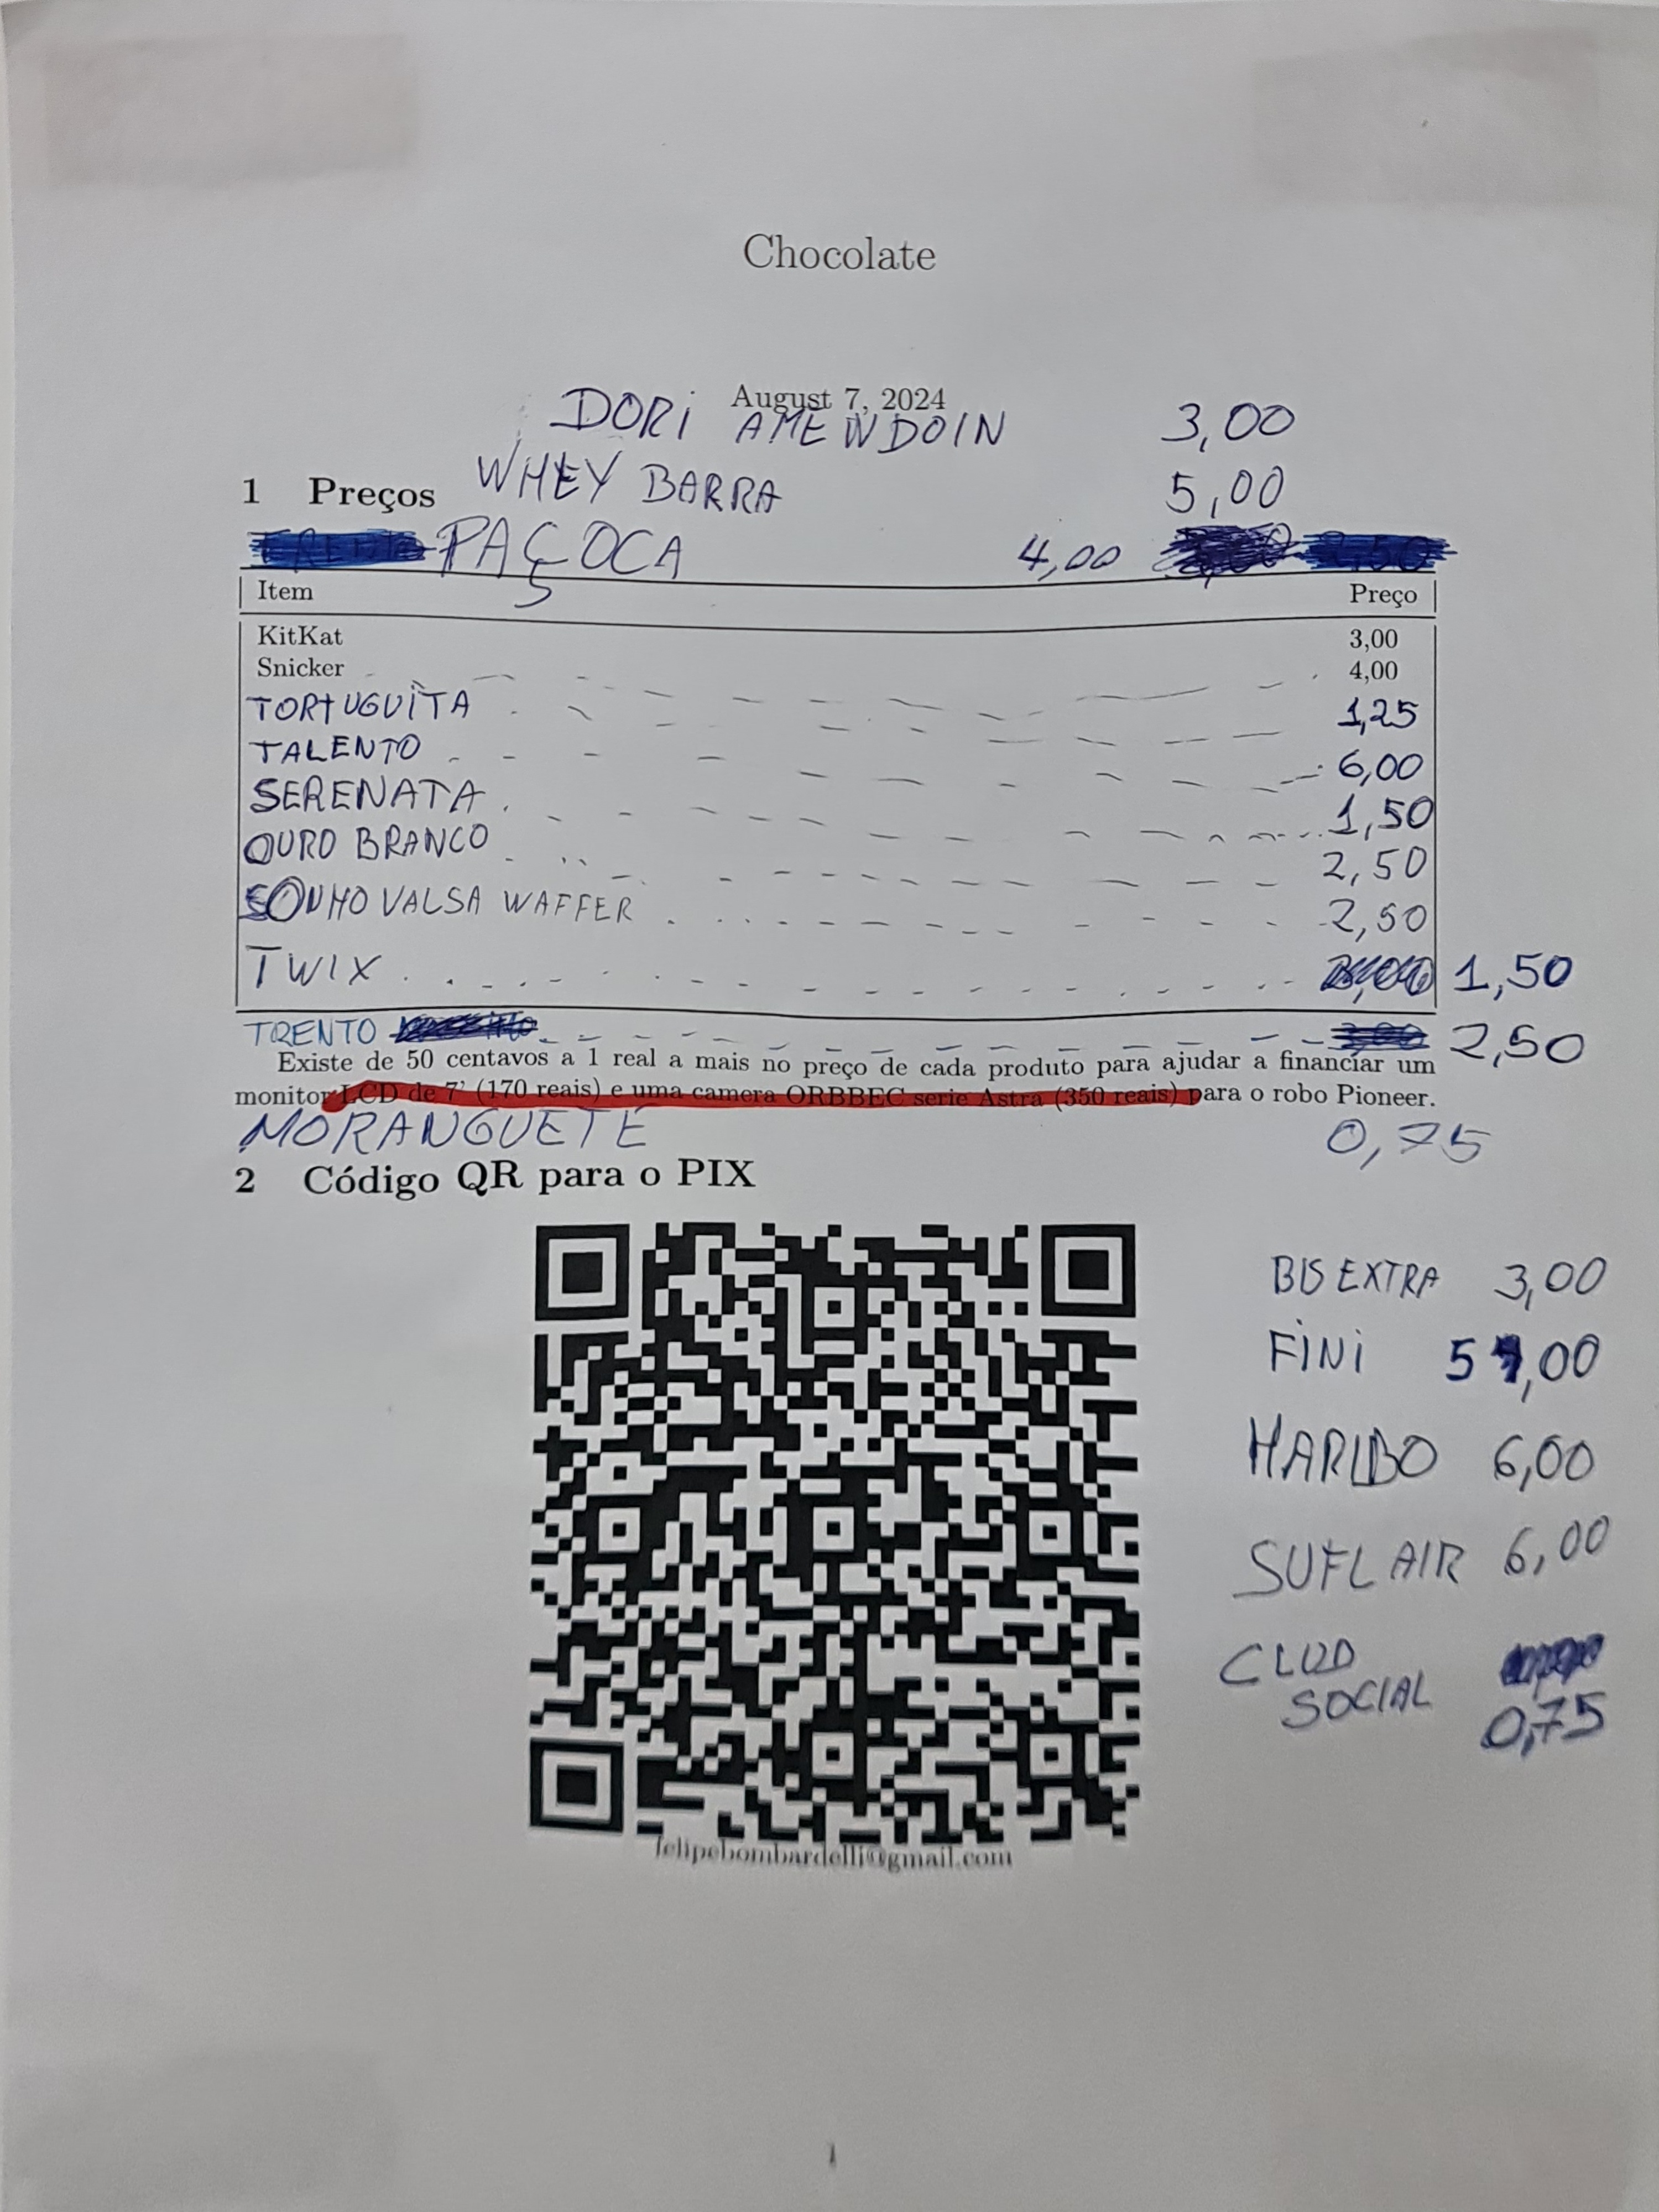 Chocolate
August 7, 2024
DORI AMEWDOIN 3,00
WHEY BARRA 5,00
1 Preços
PAÇOCA 4,00
Item Preço
KitKat 3,00
Snicker 4,00
TORTUGUITA 1,25
TALENTO 6,00
SERENATA 1,50
OURO BRANCO 2,50
SONHO VALSA WAFFER 2,50
TWIX 1,50
TRENTO 2,50
Existe de 50 centavos a 1 real a mais no preço de cada produto para ajudar a financiar um
monitor LCD de 7' (170 reais) e uma camera ORBBEC serie Astra (350 reais) para o robo Pioneer.
MORANGUETE 0,75
2 Código QR para o PIX
BIS EXTRA 3,00
FINI 5,00
HARIBO 6,00
SUFLAIR 6,00
CLUD
SOCIAL 0,75
felipebombardelli@gmail.com